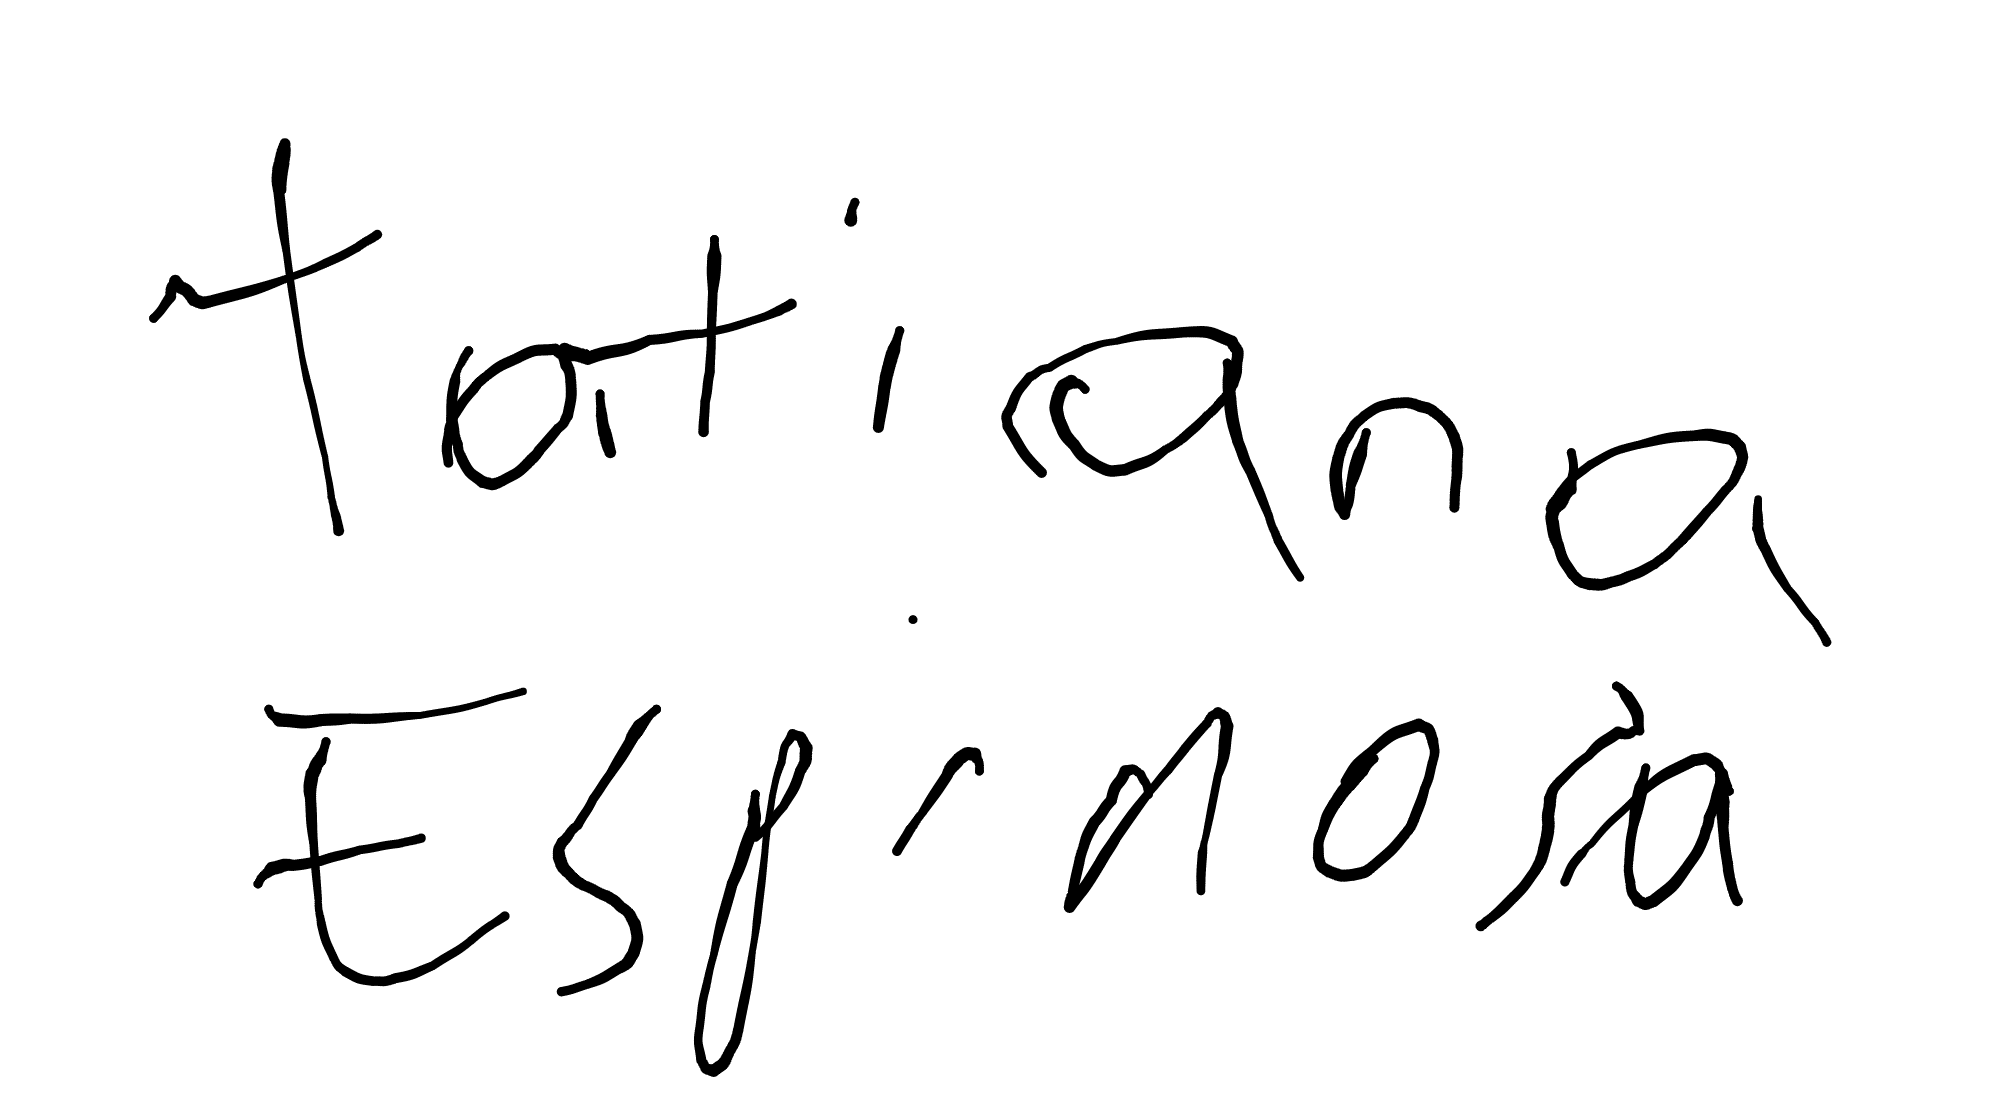 Tatiana
Espinosa